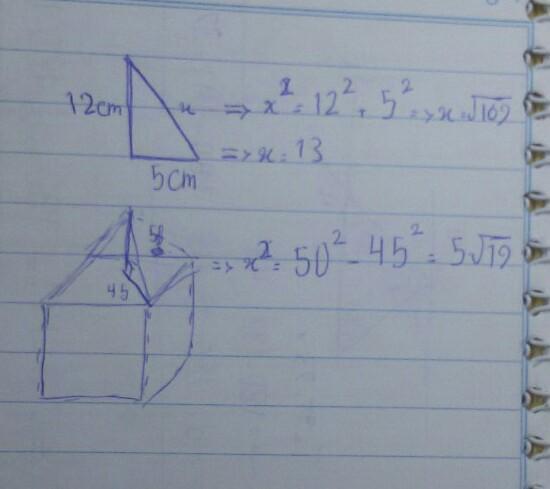 12cm x => x² = 12² + 5² => x = √169
=> x = 13
5cm
50
45 => x² = 50² - 45² = 5√19